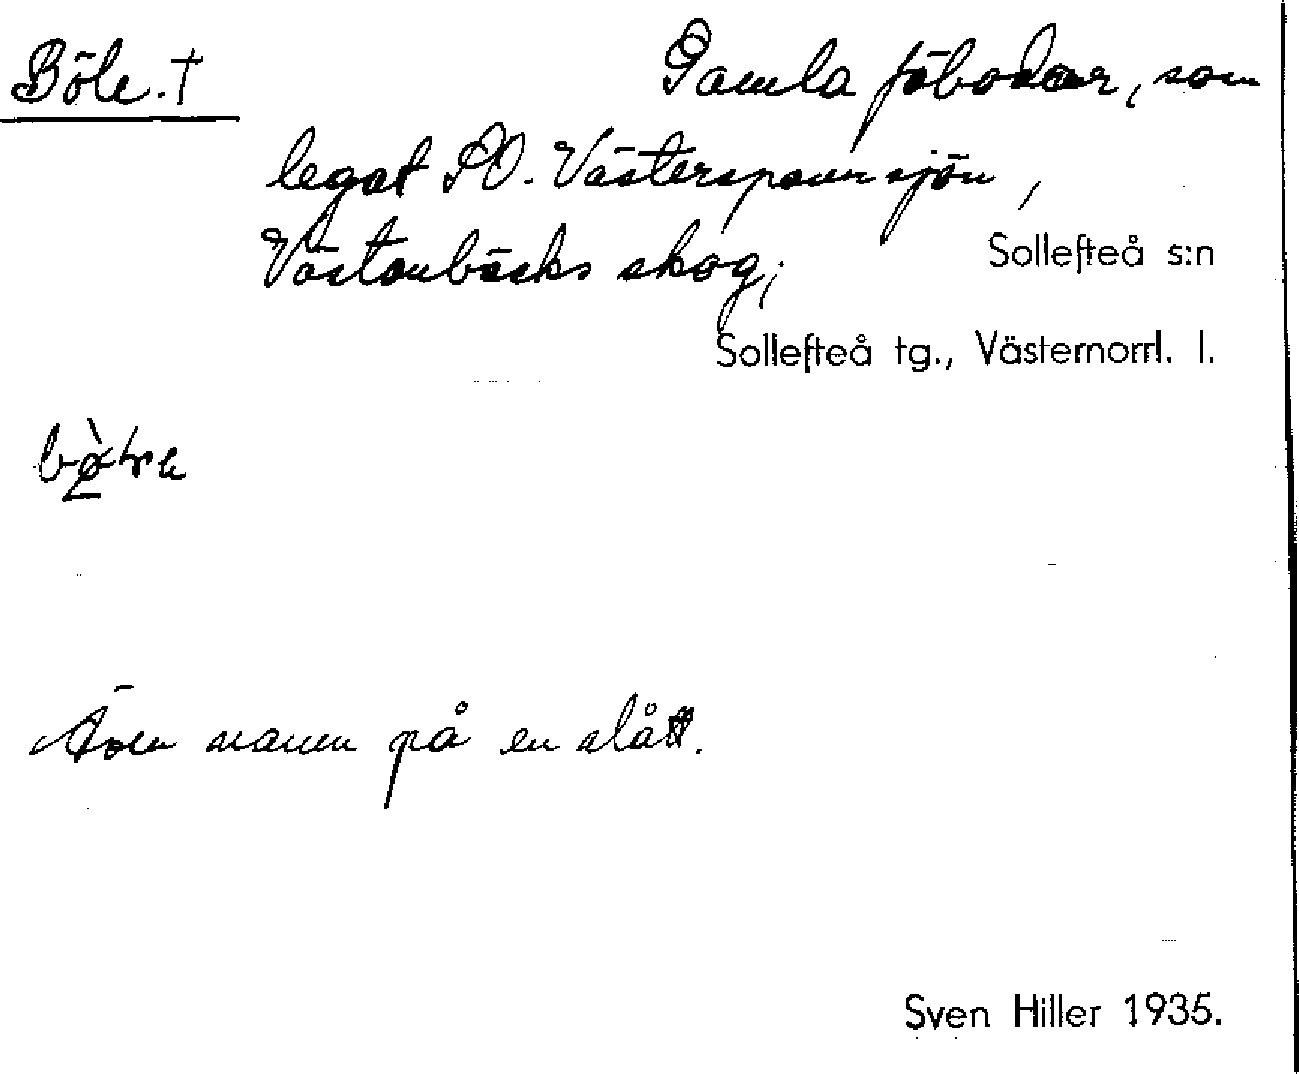 Böle. †
Gamla fäbodar, som
legat SO. Västerspannsjön,
Västanbäcks skog;
Sollefteå s:n
Sollefteå tg., Västernorrl. l.
Även namn på en slått.
Sven Hiller 1935.